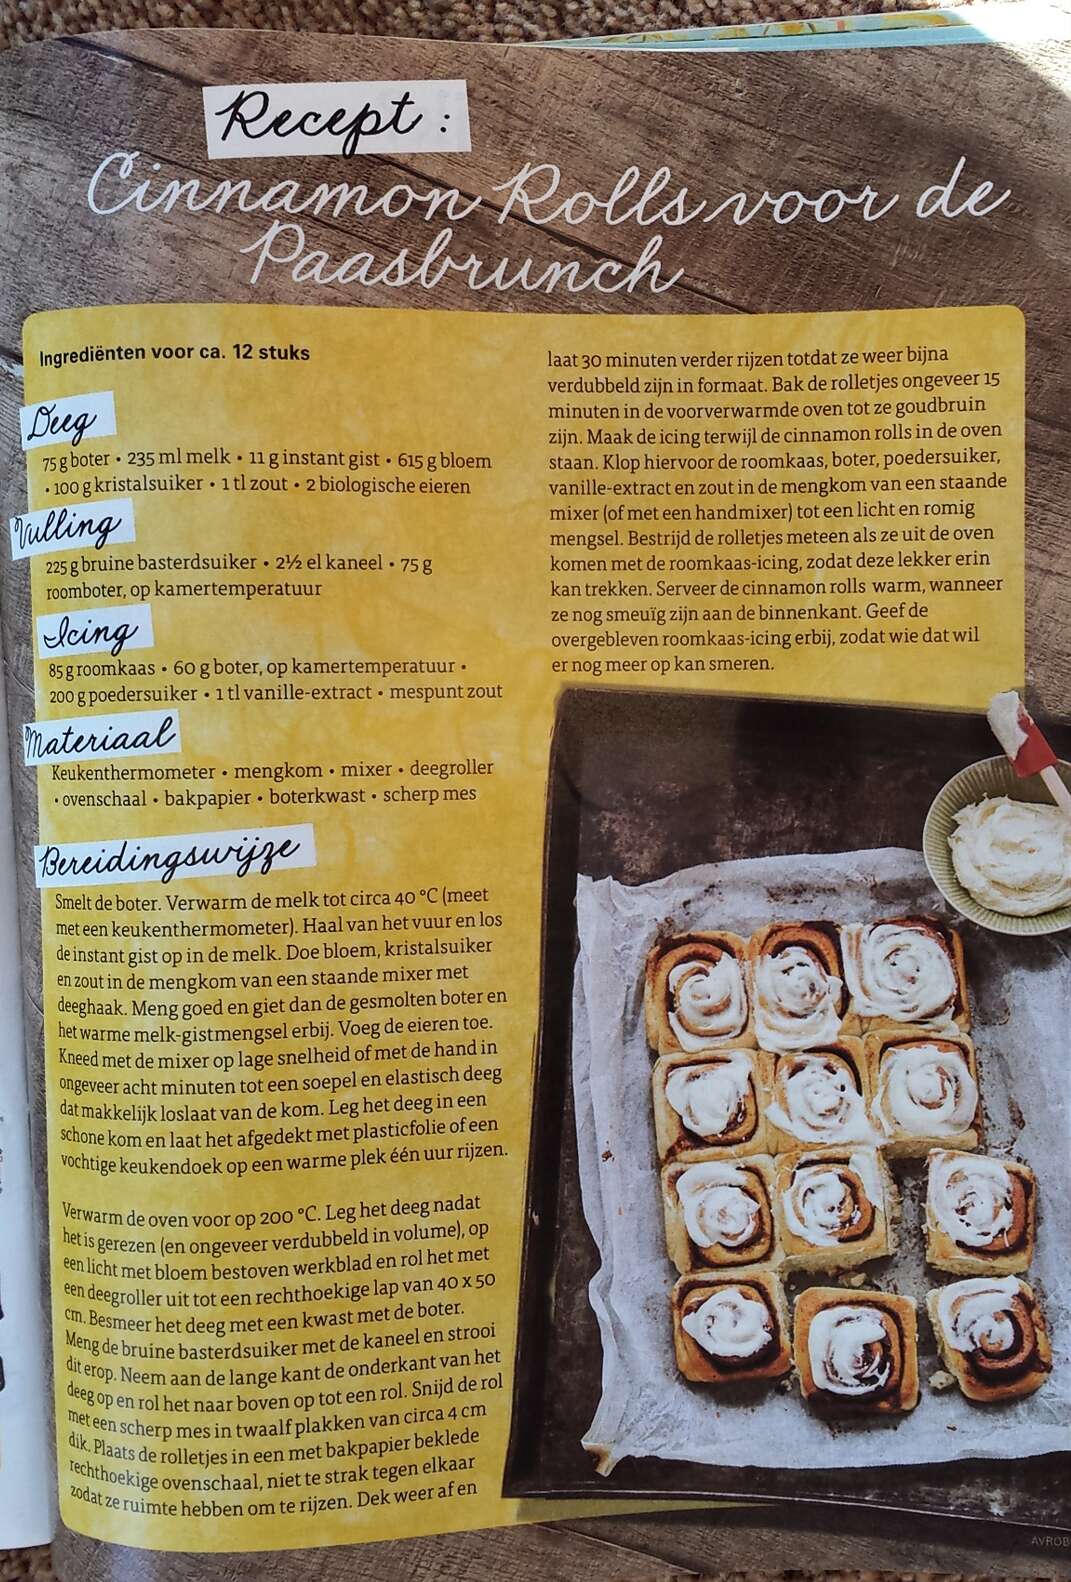 Recept:
Cinnamon Rolls voor de
Paasbrunch
Ingrediënten voor ca. 12 stuks
Deeg
75 g boter • 235 ml melk • 11 g instant gist • 615 g bloem
• 100 g kristalsuiker • 1 tl zout • 2 biologische eieren
Vulling
225 g bruine basterdsuiker • 2½ el kaneel • 75 g
roomboter, op kamertemperatuur
Icing
85 g roomkaas • 60 g boter, op kamertemperatuur •
200 g poedersuiker • 1 tl vanille-extract • mespunt zout
Materiaal
Keukenthermometer • mengkom • mixer • deegroller
• ovenschaal • bakpapier • boterkwast • scherp mes
Bereidingswijze
Smelt de boter. Verwarm de melk tot circa 40 °C (meet
met een keukenthermometer). Haal van het vuur en los
de instant gist op in de melk. Doe bloem, kristalsuiker
en zout in de mengkom van een staande mixer met
deeghaak. Meng goed en giet dan de gesmolten boter en
het warme melk-gistmengsel erbij. Voeg de eieren toe.
Kneed met de mixer op lage snelheid of met de hand in
ongeveer acht minuten tot een soepel en elastisch deeg
dat makkelijk loslaat van de kom. Leg het deeg in een
schone kom en laat het afgedekt met plasticfolie of een
vochtige keukendoek op een warme plek één uur rijzen.
Verwarm de oven voor op 200 °C. Leg het deeg nadat
het is gerezen (en ongeveer verdubbeld in volume), op
een licht met bloem bestoven werkblad en rol het met
een deegroller uit tot een rechthoekige lap van 40 x 50
cm. Besmeer het deeg met een kwast met de boter.
Meng de bruine basterdsuiker met de kaneel en strooi
dit erop. Neem aan de lange kant de onderkant van het
deeg op en rol het naar boven op tot een rol. Snijd de rol
met een scherp mes in twaalf plakken van circa 4 cm
dik. Plaats de rolletjes in een met bakpapier beklede
rechthoekige ovenschaal, niet te strak tegen elkaar
zodat ze ruimte hebben om te rijzen. Dek weer af en
laat 30 minuten verder rijzen totdat ze weer bijna
verdubbeld zijn in formaat. Bak de rolletjes ongeveer 15
minuten in de voorverwarmde oven tot ze goudbruin
zijn. Maak de icing terwijl de cinnamon rolls in de oven
staan. Klop hiervoor de roomkaas, boter, poedersuiker,
vanille-extract en zout in de mengkom van een staande
mixer (of met een handmixer) tot een licht en romig
mengsel. Bestrijd de rolletjes meteen als ze uit de oven
komen met de roomkaas-icing, zodat deze lekker erin
kan trekken. Serveer de cinnamon rolls warm, wanneer
ze nog smeuïg zijn aan de binnenkant. Geef de
overgebleven roomkaas-icing erbij, zodat wie dat wil
er nog meer op kan smeren.
AVROB